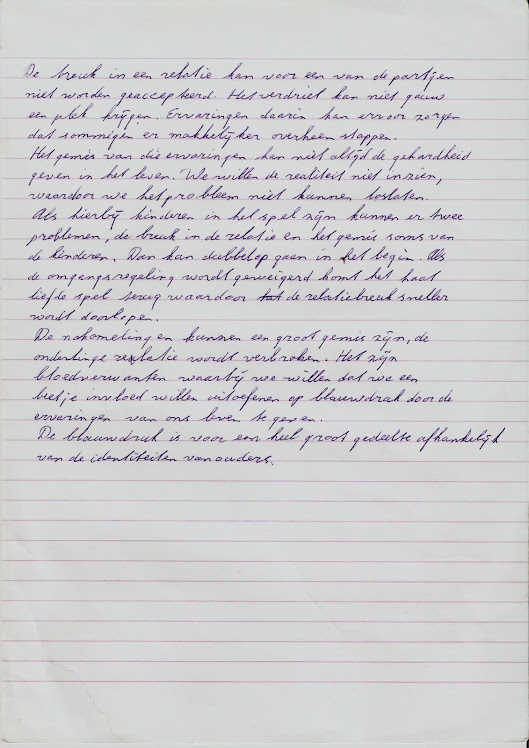 De breuk in een relatie kan voor een van de partijen
niet worden geaccepteerd. Het verdriet kan niet gauw
een plek krijgen. Ervaringen daarin kan ervoor zorgen
dat sommigen er makkelijker overheen stappen.
Het gemis van die ervaringen kan niet altijd de gehardheid
geven in het leven. We willen de realiteit niet inzien,
waardoor we het probleem niet kunnen loslaten.
Als hierbij kinderen in het spel zijn kunnen er twee
problemen, de breuk in de relatie en het gemis soms van
de kinderen. Dan kan dubbelop gaan in het begin. Als
de omgangsregeling wordt geweigerd komt het haat
liefde spel terug waardoor de relatiebreuk sneller
wordt doorlopen.
De nakomelingen kunnen een groot gemis zijn, de
onderlinge relatie wordt verbroken. Het zijn
bloedverwanten waarbij we willen dat we een
beetje invloed willen uitoefenen op blauwdruk door de
ervaringen van ons leven te geven.
De blauwdruk is voor een heel groot gedeelte afhankelijk
van de identiteiten van ouders.